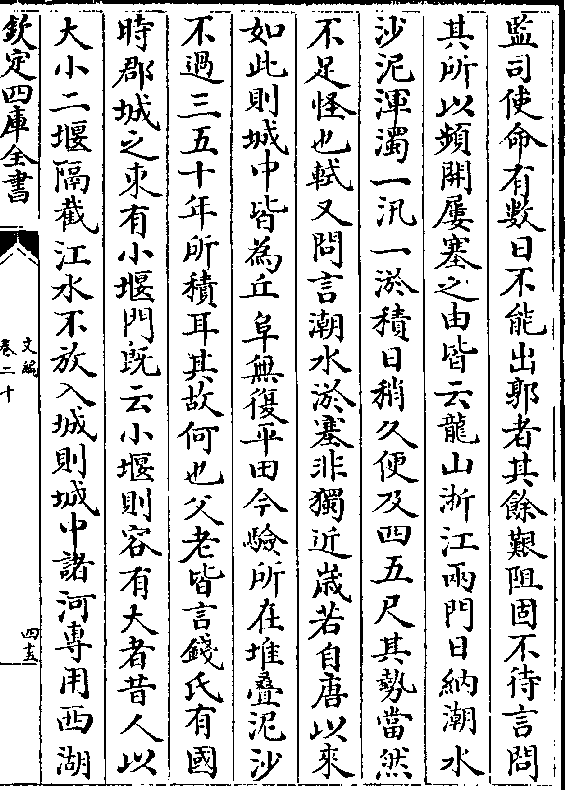 監司使命有數日不能出郭者其餘艱阻固不待言問
其所以頻開屢塞之由皆云龍山浙江兩門日納潮水
沙泥渾濁一汛一淤積日稍久便及四五尺其勢當然
不足怪也軾又問言潮水淤塞非獨近歲若自唐以來
如此則城中皆為丘阜無復平田今驗所在堆疊泥沙
不過三五十年所積耳其故何也父老皆言錢氏有國
時郡城之東有小堰門既云小堰則容有大者昔人以
大小二堰隔截江水不放入城則城中諸河專用西湖
欽定四庫全書
文編
卷二十
四五